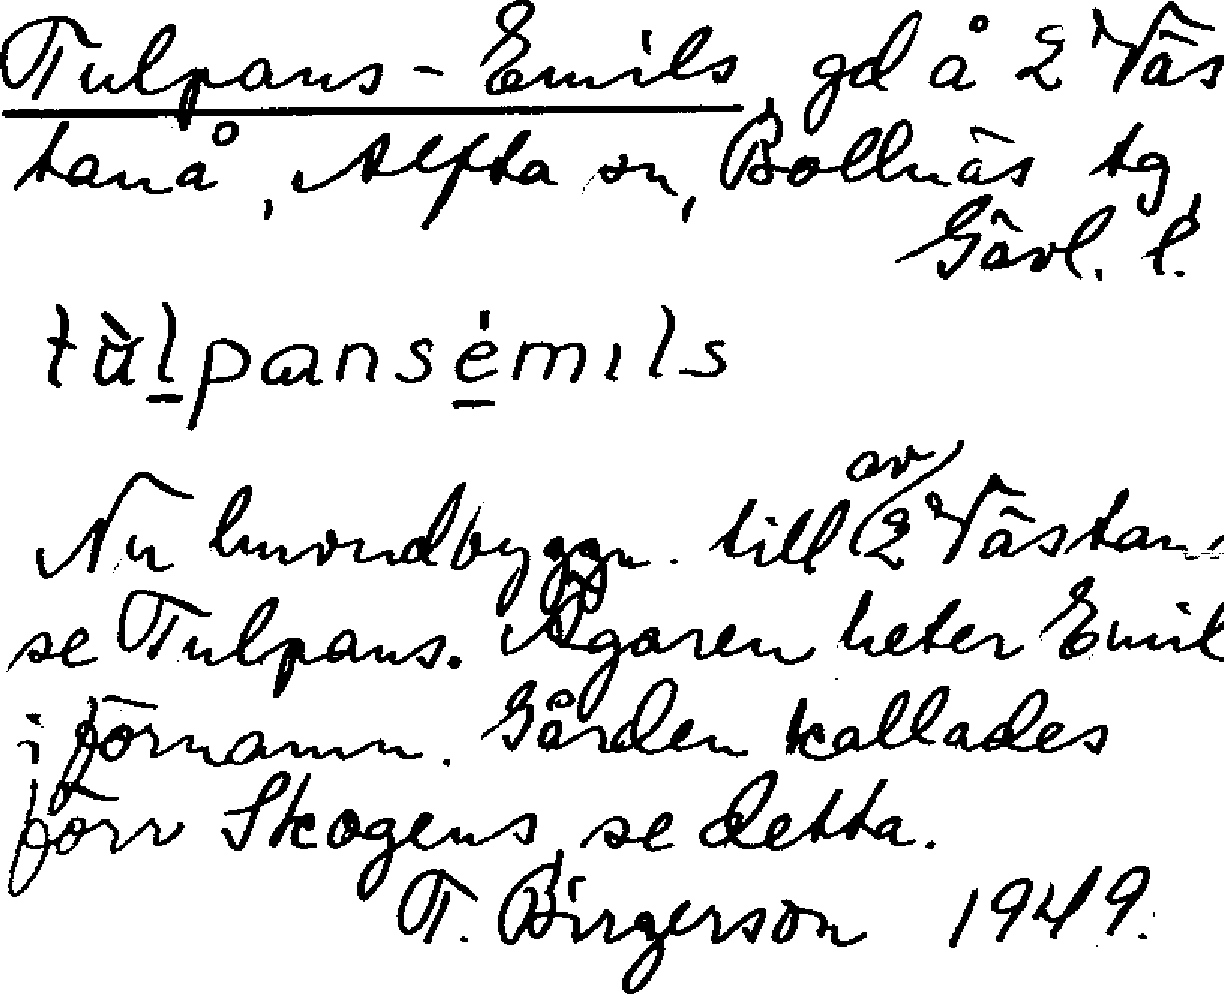 Tulpans-Emils, gd å 2 Väs
tanå, Alfta sn, Bollnäs tg,
Gävl. l.
tὰl̠pans é̠mıls
Nu huvudbyggn. till av 2 Västanå
se Tulpans. Ägaren heter Emil
i förnamn. Gården kallades
förr Skogens, se detta.
T. Birgerson 1949.